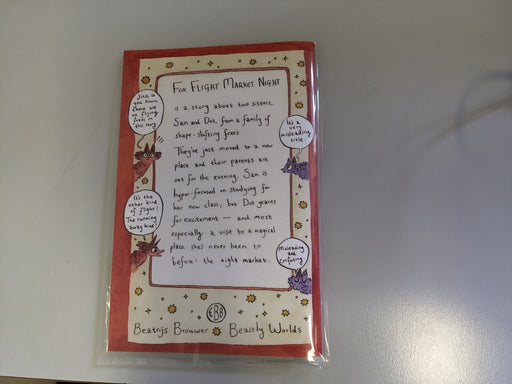 FOX FLIGHT MARKET NIGHT
is a story about two sisters,
Sam and Dot, from a family of
shape-shifting foxes.
They've just moved to a new
place and their parents are
out for the evening. Sam is
hyper-focused on studying for
her new class, but Dot yearns
for excitement — and most
especially a visit to a magical
place she's never been to
before: the night market.
Just so
you know,
there are
no flying
foxes in
this story
It's a
very
misleading
title.
It's the
other kind
of flight!
The running
away kind.
Misleading
and
confusing.
EBB
Beatrijs Brouwer
Beastly Worlds